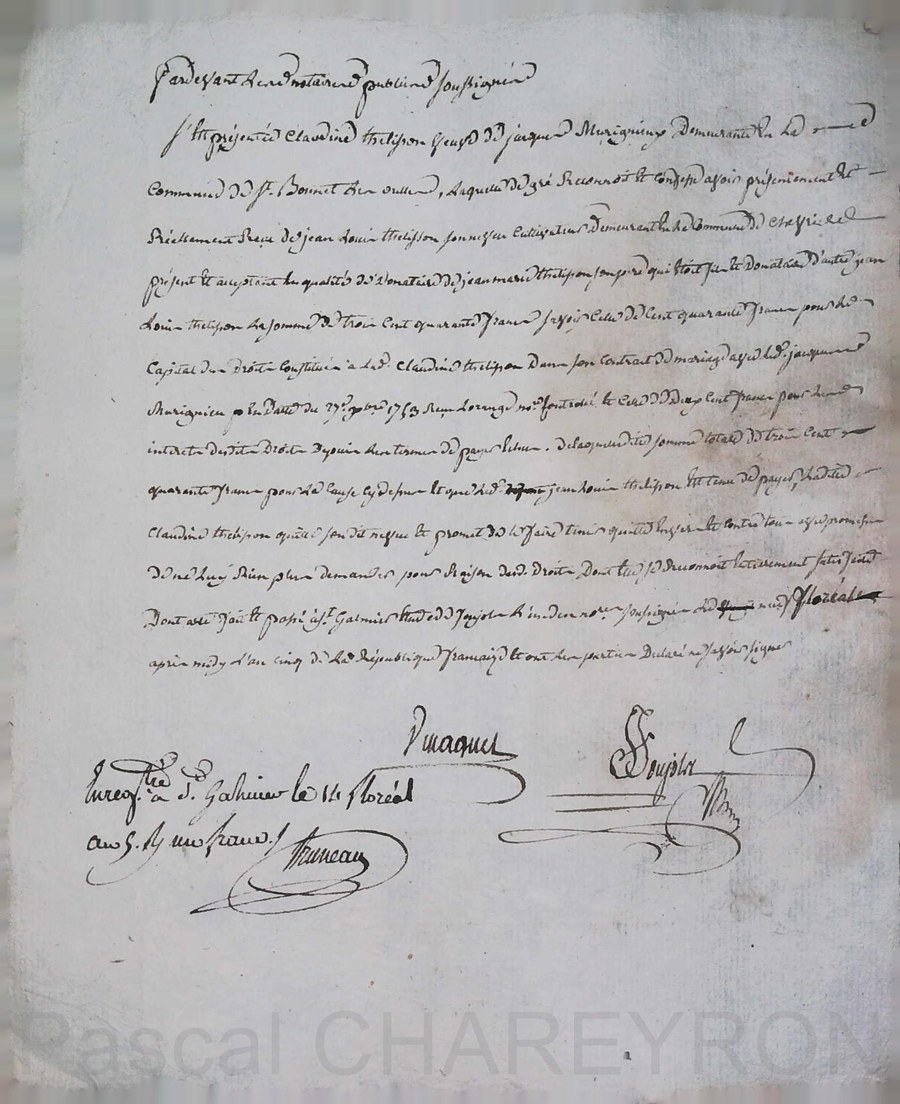 Pardevant les notaires publics soussignés
S'est présentée Claudine thelisson veuve de jacques Murignieux Demeurante en la
Commune de St. Bonnet les oulles, Laquelle de gré Reconnoit et confesse avoir présentement et
Réellement Reçu de jean Louis thelisson son neveu Cultivateur Demeurant en la Commune de Chevrieres
présent et acceptant en qualité de Donataire de jeanmarie thelisson son pere qui étoit frere et Donataire d'autre jean
Louis thelisson La somme de trois Cent quarante francs savoir Celle de Cent quarante francs pour le
Capital des Droits Constitués a lade. Claudine thelisson Dans son contrat de mariage avec led. jacques
Murignieu en Datte du 27e. 9bre 1753 Reçu nore. et Celle de Deux Cent francs pour les
interets desdits Droits Depuis les termes de payes échus. De laquelle ditte somme totale de trois Cent
quarante francs pour les Causes cy dessus et que led. jean Louis thelisson est tenu de payer, Ladite
Claudine thelisson quitte son dit neveu et promet de le faire tenir quitte envers et contre tous avec promesse
de ne luy Rien plus demander pour Raison desd. Droits, Dont elle se Reconnoit entierement satisfaite
Dont acte fait et passé a St. Galmier Etude de Soujols L'un des nores. soussignés Le neuf floréal
après midy L'an cinq de La République française et ont Les parties Declaré ne savoir signer
Dmagnet Soujols
Enregistré a St. Galmier le 14 floréal
an 5. R un franc
Bruneau
Pascal CHAREYRON